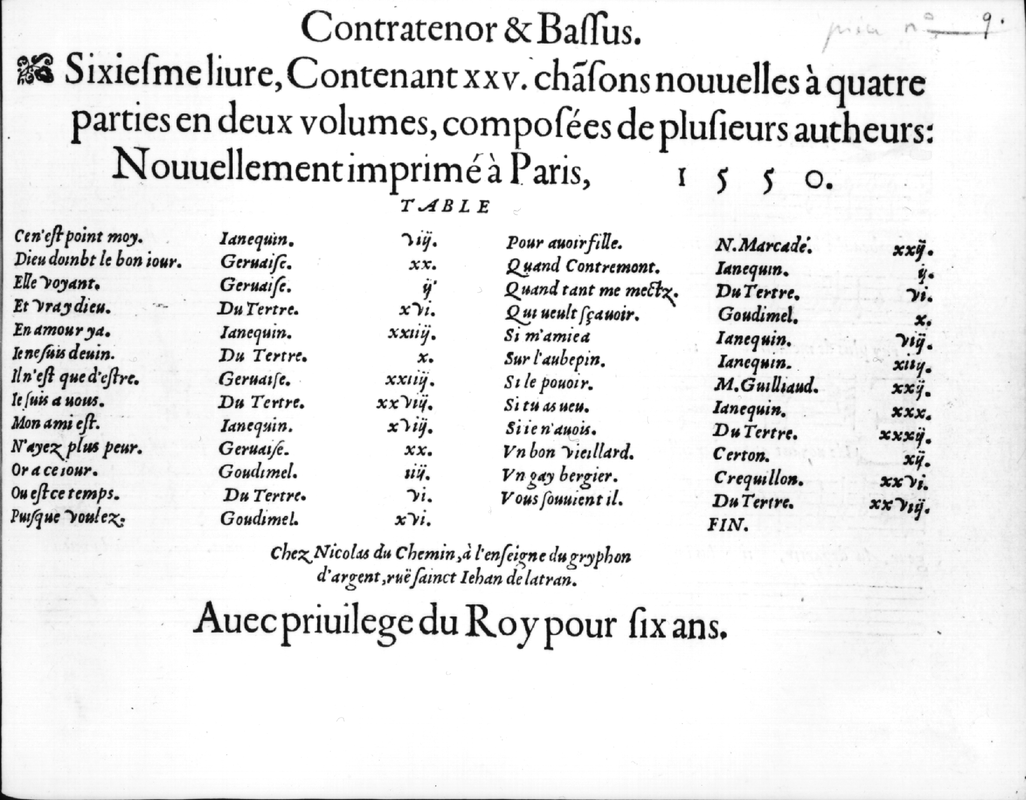 piece nº 9.
Contratenor & Baſſus.
Sixieſme liure, Contenant xxv. chãſons nouuelles à quatre
parties en deux volumes, compoſées de pluſieurs autheurs:
Nouuellement imprimé à Paris, 1550.
TABLE
Ce n'eſt point moy. Ianequin. vij.
Dieu doinbt le bon iour. Geruaiſe. xx.
Elle voyant. Geruaiſe. ij
Et vray dieu. Du Tertre. xvi.
En amour ya. Ianequin. xxiiij.
Ie ne ſuis deuin. Du Tertre. x.
Il n'eſt que d'eſtre. Geruaiſe. xxiiij.
Ie ſuis a uous. Du Tertre. xxviij.
Mon ami eſt. Ianequin. xviij.
N'ayez plus peur. Geruaiſe. xx.
Or a ce iour. Goudimel. iiij.
Ou eſt ce temps. Du Tertre. vi.
Puiſque voulez. Goudimel. xvi.
Pour auoir fille. N. Marcadé. xxij.
Quand Contremont. Ianequin. ij.
Quand tant me mectz. Du Tertre. vi.
Qui ueult ſçauoir. Goudimel. x.
Si m'amie a Ianequin. viij.
Sur l'aubepin. Ianequin. xiiij.
Si le pouoir. M. Guilliaud. xxij.
Si tu as ueu. Ianequin. xxx.
Si ie n'auois. Du Tertre. xxxij.
Vn bon vieillard. Certon. xij.
Vn gay bergier. Crequillon. xxvi.
Vous ſouuient il. Du Tertre. xxviij.
FIN.
Chez Nicolas du Chemin, à l'enſeigne du gryphon
d'argent, ruë ſainct Iehan de latran.
Auec priuilege du Roy pour ſix ans.